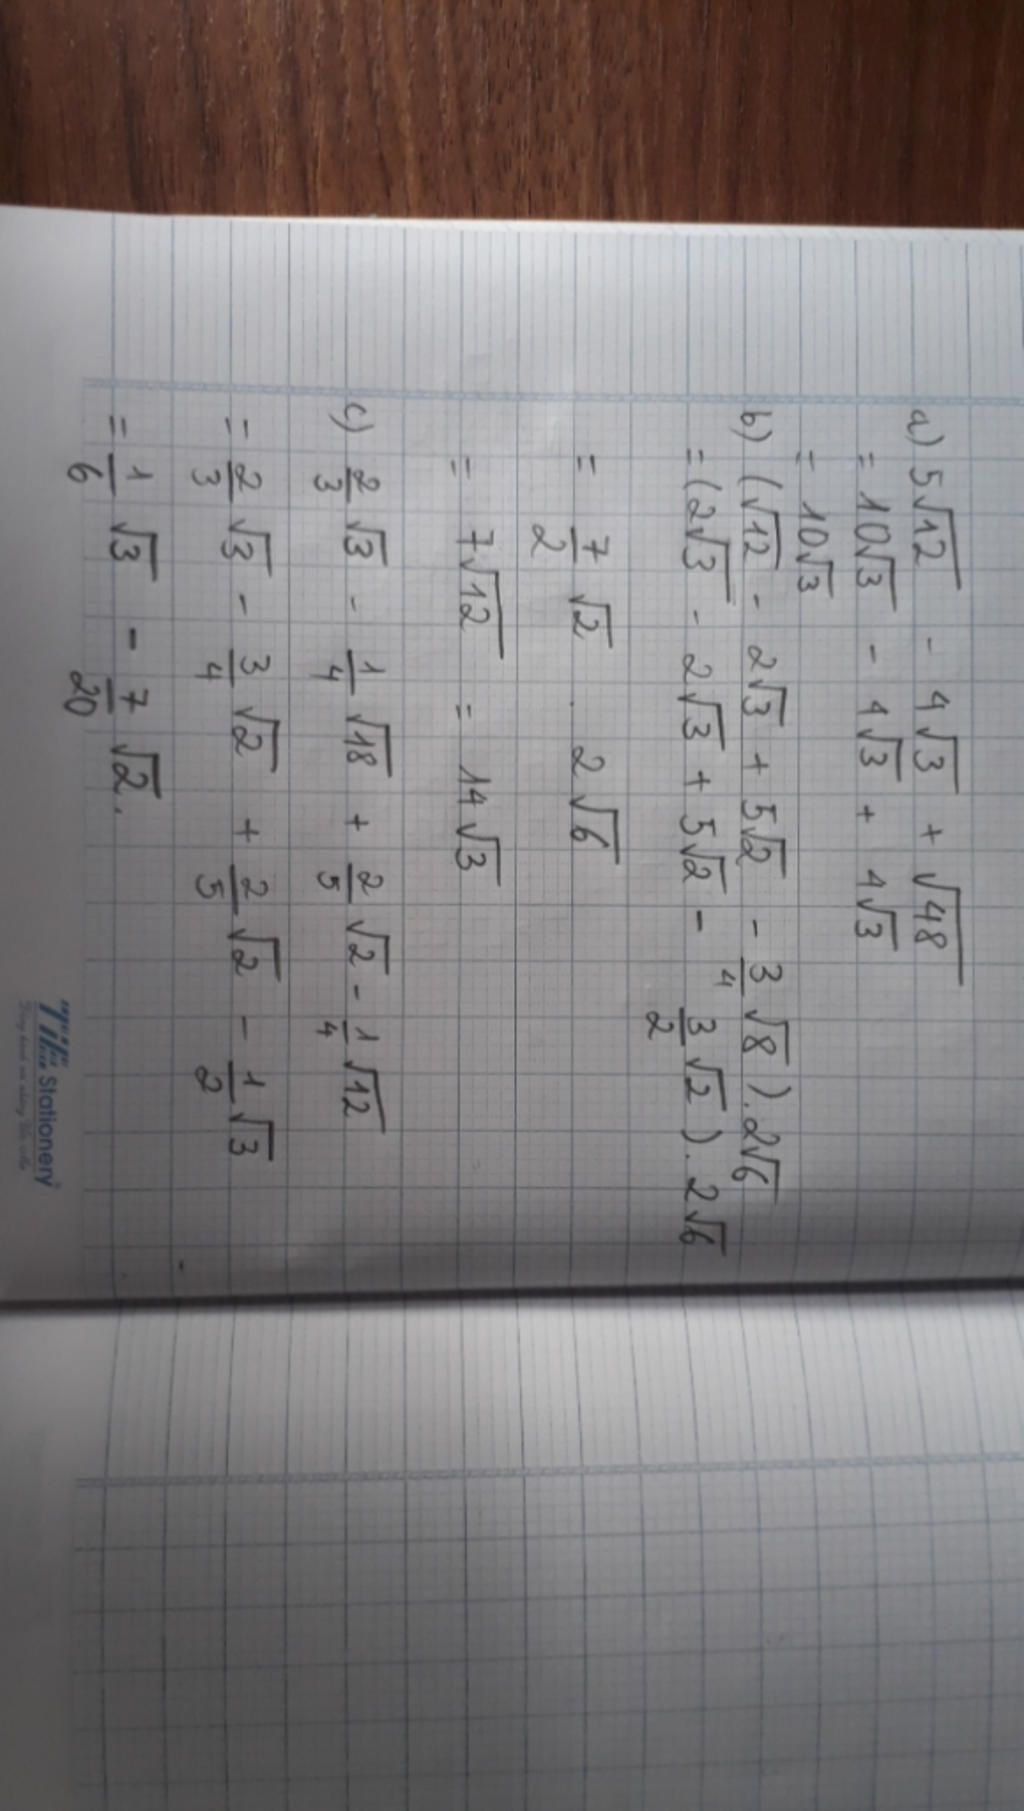 a) 5√12 - 4√3 + √48
= 10√3 - 4√3 + 4√3
= 10√3
b) (√12 - 2√3 + 5√2 - 3/4 √8). 2√6
= (2√3 - 2√3 + 5√2 - 3/2 √2). 2√6
= 7/2 √2 . 2√6
= 7√12 = 14√3
c) 2/3 √3 - 1/4 √18 + 2/5 √2 - 1/4 √12
= 2/3 √3 - 3/4 √2 + 2/5 √2 - 1/2 √3
= 1/6 √3 - 7/20 √2.
Stationery